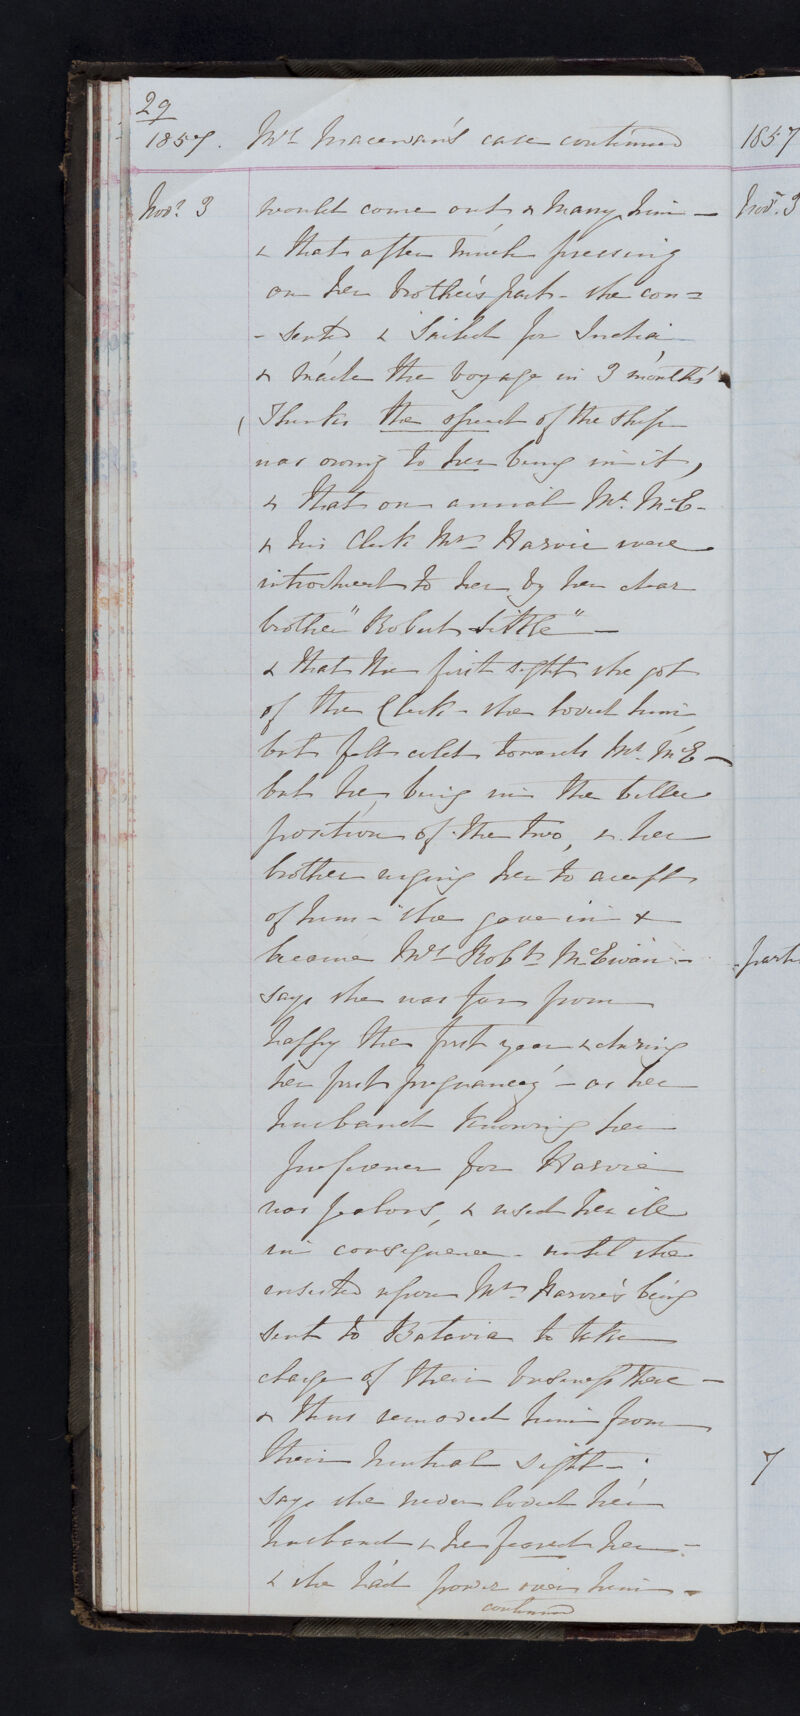 29
1857. Mrs Macewan's case continued
Novr 3 would come out & marry him —
& that after much pressing
on her brother's part - she con=
- sented & sailed for India
& made the voyage in 3 months'
Thinks the speed of the ship
was owing to her being in it,
& that on arrival Mr. McE-
& his Clerk Mr Harvie were
introduced to her by her dear
brother "Robert Little" —
& that the first sight she got
of the Clerk - she loved him
but felt cold towards Mr. McE —
but he, being in the better
position of the two, & her
brother urging her to accept
of him - she gave in &
became Mrs Robt McEwan -
says she was far from
happy the first year & during
her first pregnancy - as her
husband knowing her
preference for Harvie
was jealous, & used her ill
in consequence - until she
insisted upon Mr Harvie's being
sent to Batavia to take
charge of their business there —
& thus removed him from
their mutual sight - .
says she never loved her
husband & he feared her -
& she had power over him -
continued
1857
Novr. 3
7